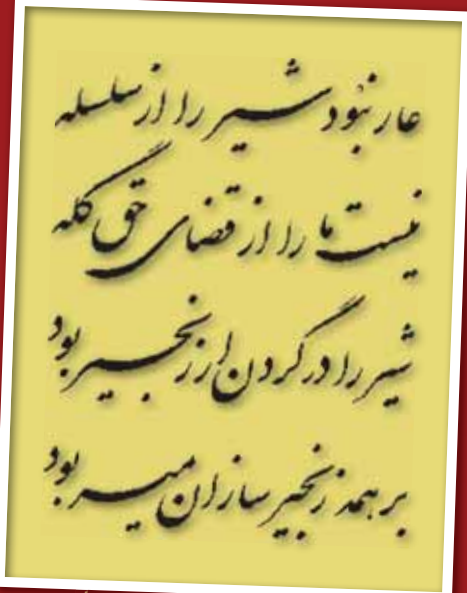 عار نبود شیر را از سلسله
نیست ما را از قضای حق گله
شیر را در گردن ار زنجیر بود
بر همه زنجیر سازان میر بود